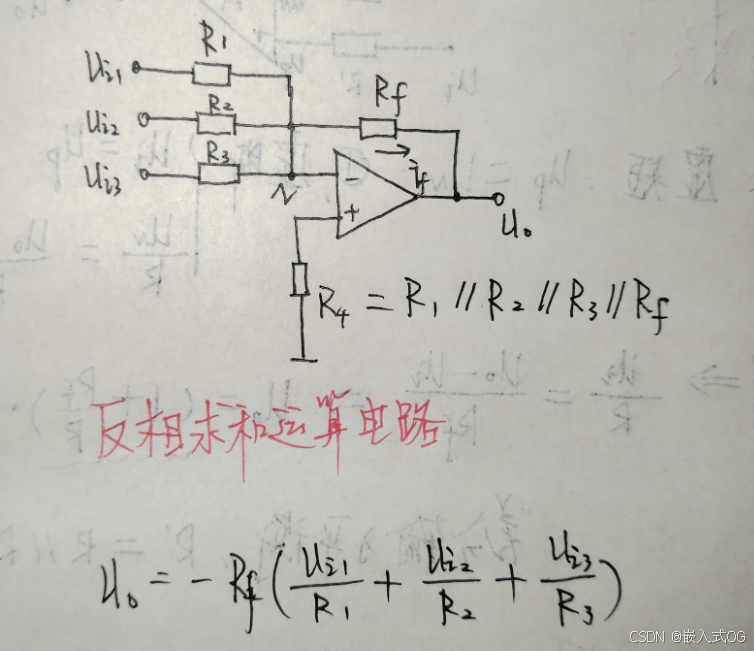 R1
Ui1
R2
Rf
Ui2
R3
if
Ui3
N
-
+
Uo
R4 = R1 // R2 // R3 // Rf
反相求和运算电路
Uo = - Rf ( Ui1/R1 + Ui2/R2 + Ui3/R3 )
CSDN @嵌入式OG